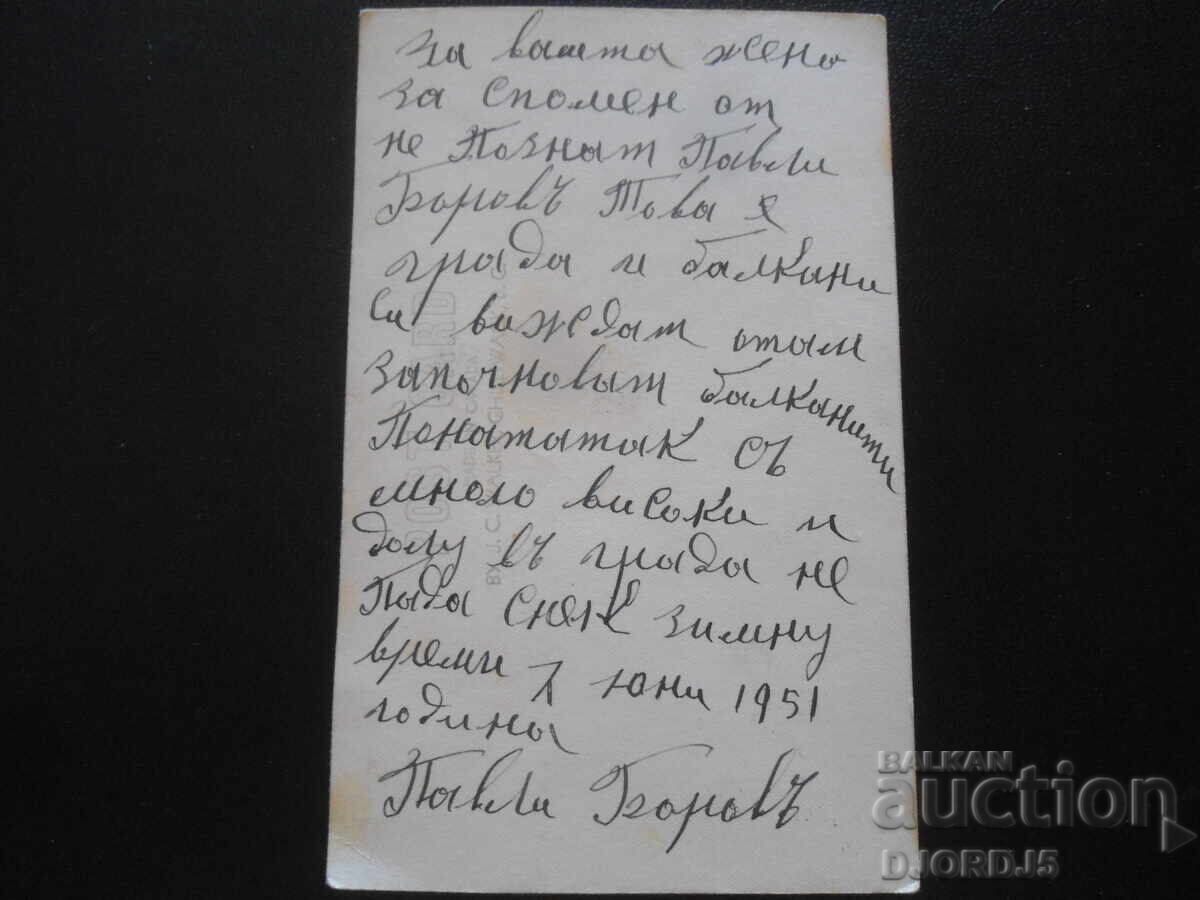 За вашта жена
за спомен от
не Познат Павли
Боровъ Това е
града и балкани
си виждат отам
започноват балканити
Понататак съ
много високи и
долу въ града не
Пада снек зимну
времи 7 юни 1951
година
Павли Боровъ
POST CARD
BALKAN
auction
DJORDJ5